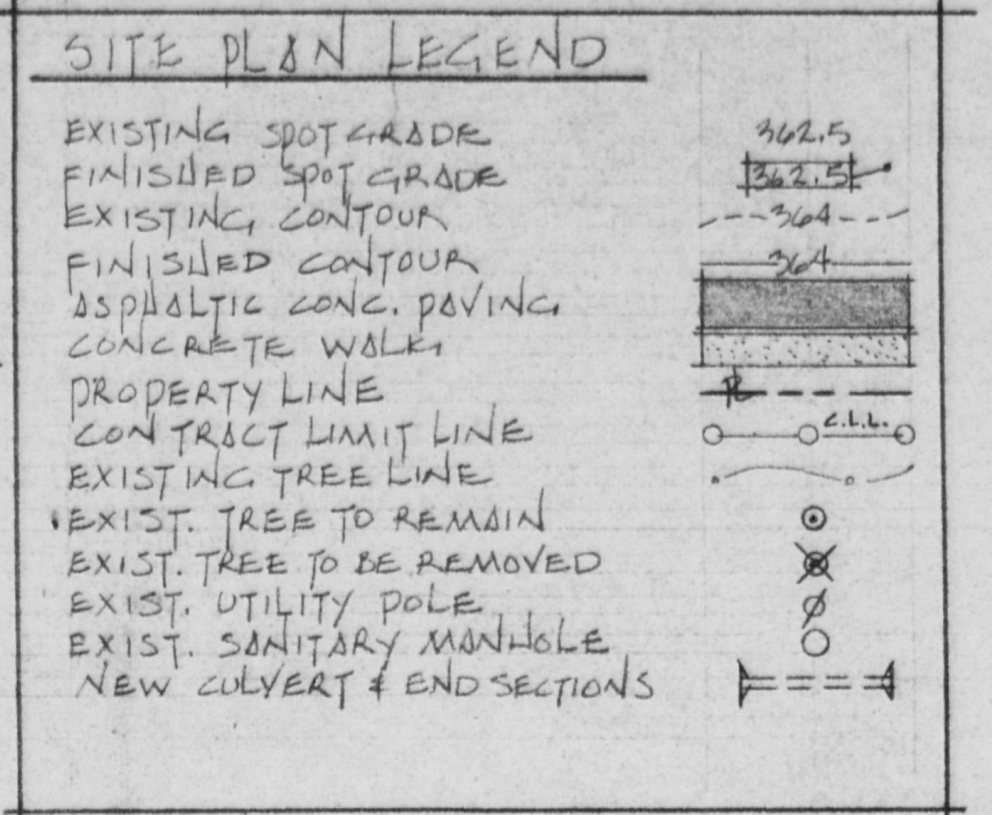 SITE PLAN LEGEND
EXISTING SPOT GRADE 362.5
FINISHED SPOT GRADE 362.5
EXISTING CONTOUR 364
FINISHED CONTOUR 364
ASPHALTIC CONC. PAVING
CONCRETE WALK
PROPERTY LINE PL
CONTRACT LIMIT LINE C.L.L.
EXISTING TREE LINE
EXIST. TREE TO REMAIN
EXIST. TREE TO BE REMOVED
EXIST. UTILITY POLE
EXIST. SANITARY MANHOLE
NEW CULVERT & END SECTIONS